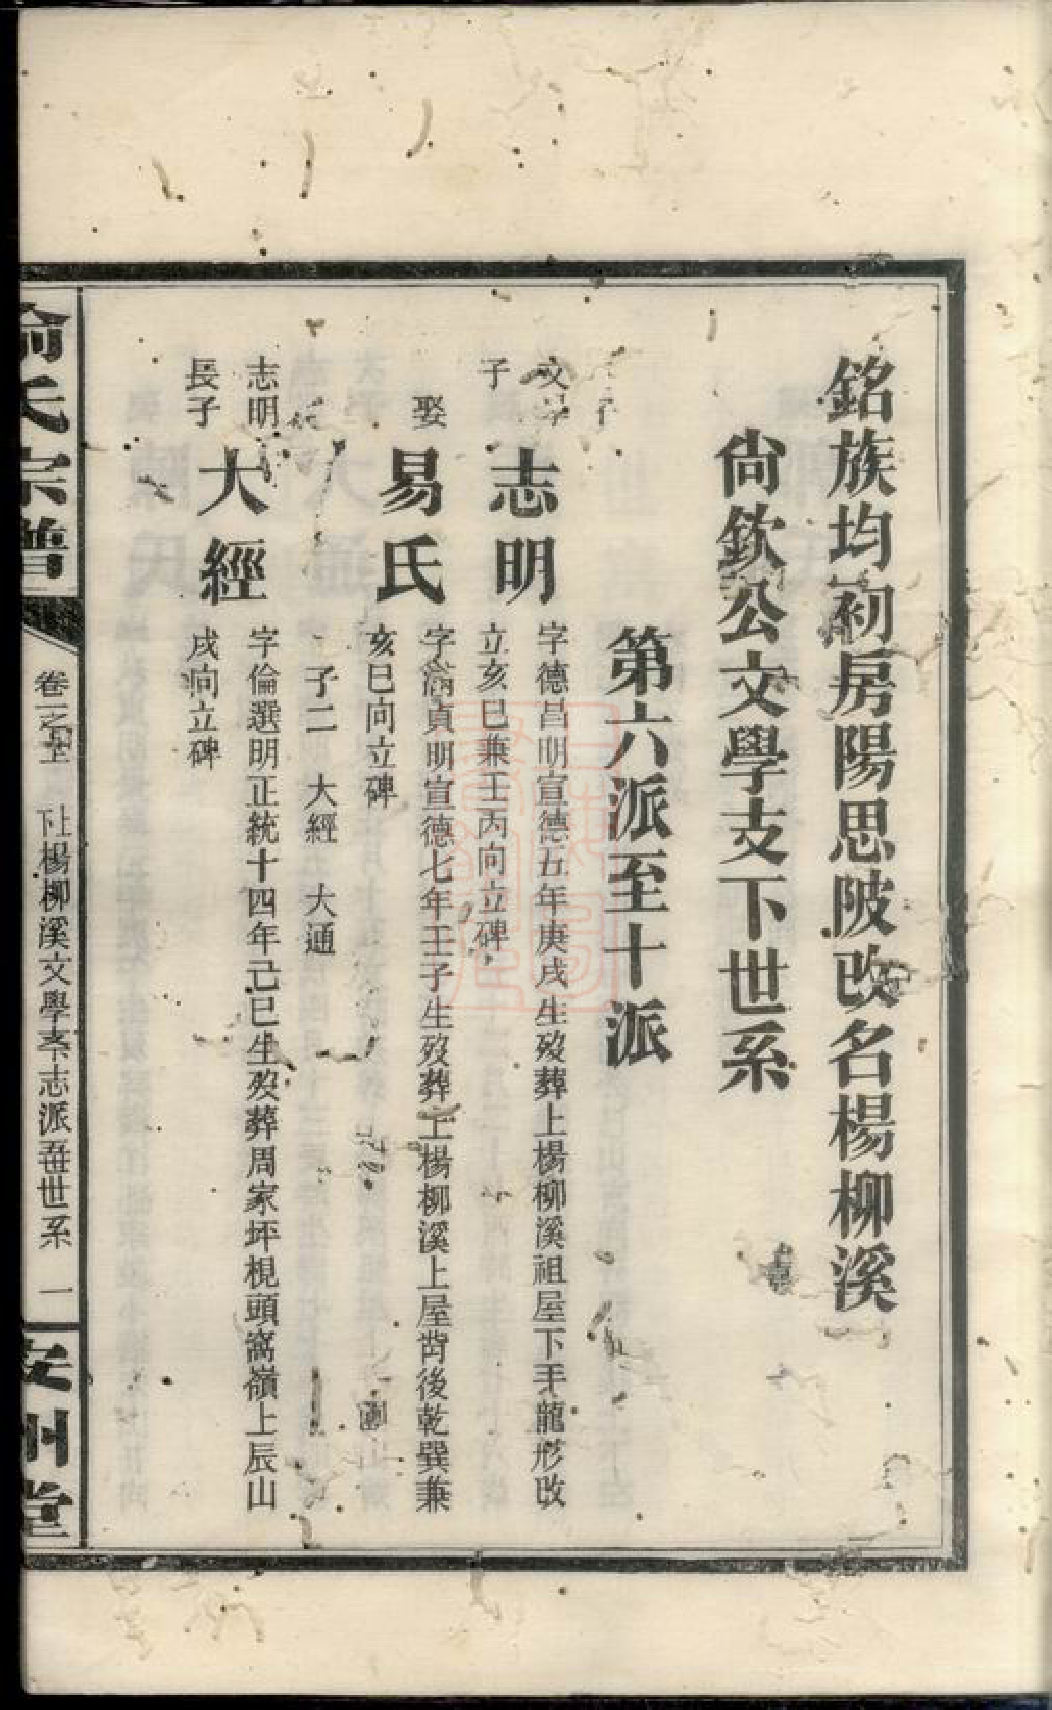 銘族均初房陽思陂改名楊柳溪
尙欽公文學支下世系
第六派至十派
文學
子
志明
字德昌明宣德五年庚戌生歿葬上楊柳溪祖屋下手龍形改
立亥巳兼壬丙向立碑
娶
易氏
字滿貞明宣德七年壬子生歿葬上楊柳溪上屋背後乾巽兼
亥巳向立碑
子二 大經 大通
志明
長子
大經
字倫選明正統十四年己巳生歿葬周家坪梘頭窩嶺上辰山
戌向立碑
氏宗譜
卷一之
楊柳溪文學系志派世系 一
安州堂